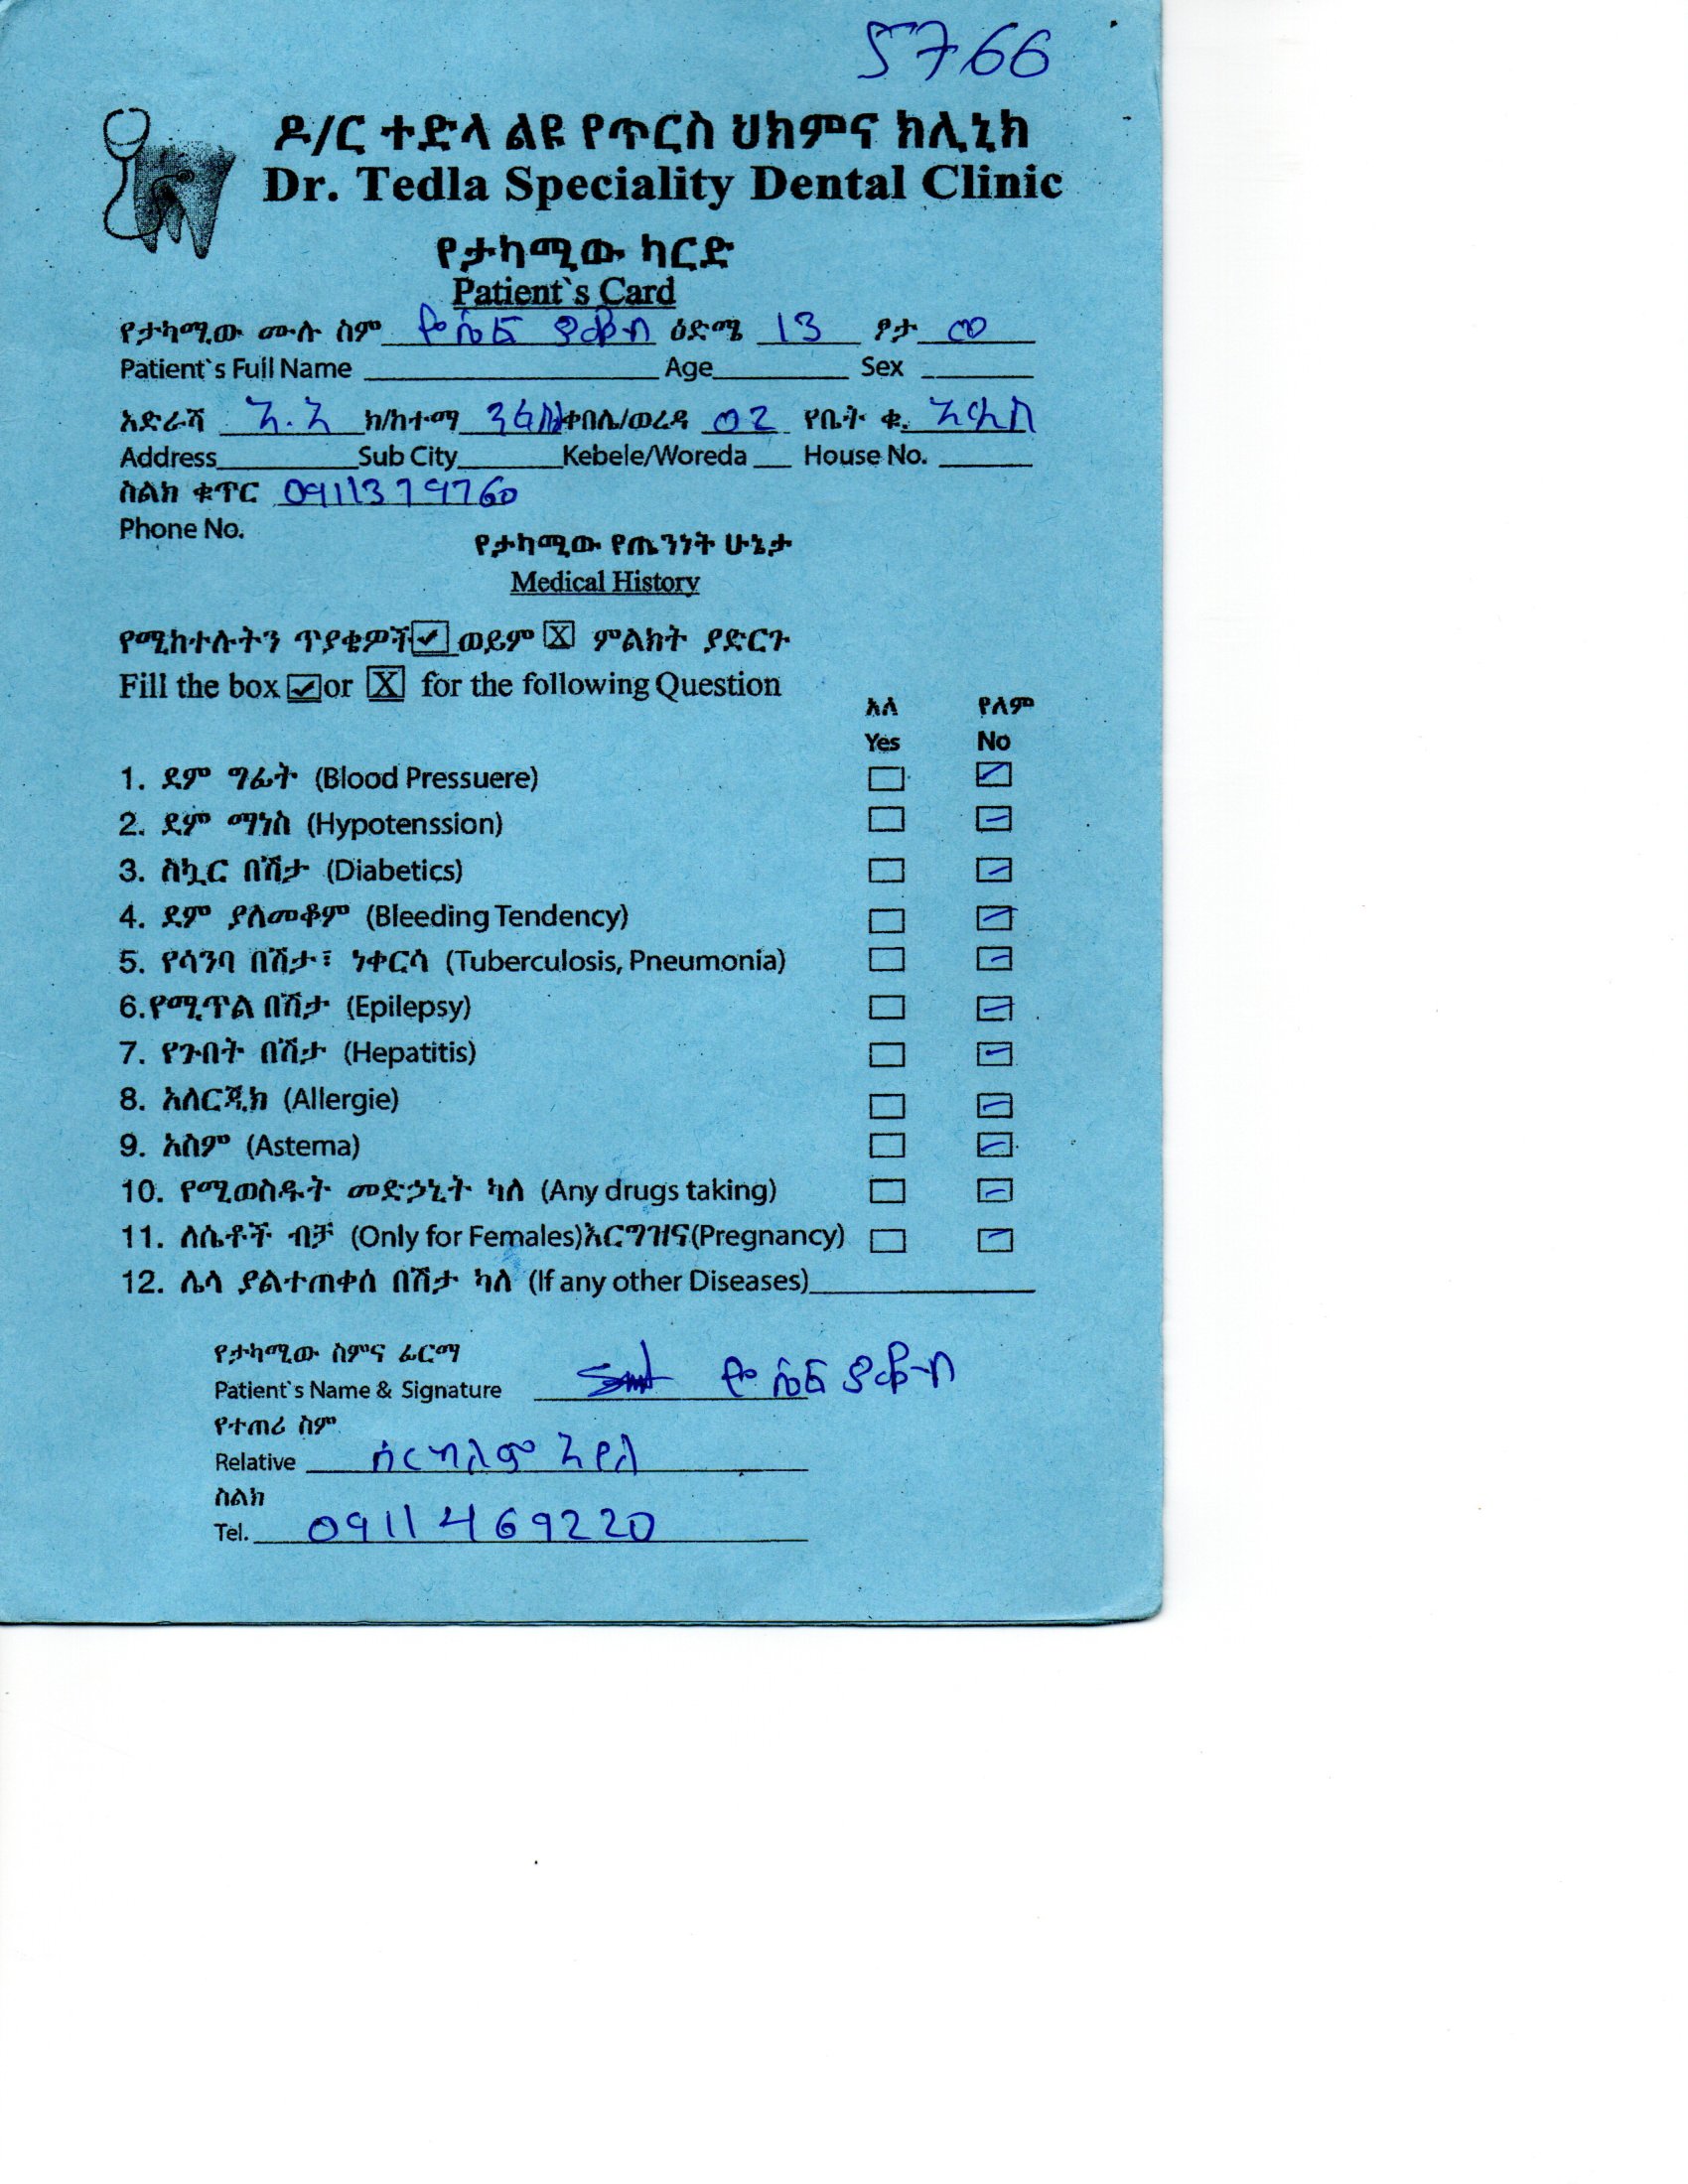 5766
ዶ/ር ተድላ ልዩ የጥርስ ህክምና ክሊኒክ
Dr. Tedla Speciality Dental Clinic
የታካሚው ካርድ
Patient`s Card
የታካሚው ሙሉ ስም ዮሴፍ ያዕቆብ ዕድሜ 13 ፆታ ወ
Patient`s Full Name Age Sex
አድራሻ አ.አ ክ/ከተማ ቀበሌ/ወረዳ 02 የቤት ቁ. አዲስ
Address Sub City Kebele/Woreda House No.
ስልክ ቁጥር 0911379760
Phone No.
የታካሚው የጤንነት ሁኔታ
Medical History
የሚከተሉትን ጥያቄዎች ✓ ወይም X ምልክት ያድርጉ
Fill the box ✓ or X for the following Question
አለ የለም
Yes No
1. ደም ግፊት (Blood Pressuere)
2. ደም ማነስ (Hypotenssion)
3. ስኳር በሽታ (Diabetics)
4. ደም ያለመቆም (Bleeding Tendency)
5. የሳንባ በሽታ፣ ነቀርሳ (Tuberculosis, Pneumonia)
6.የሚጥል በሽታ (Epilepsy)
7. የጉበት በሽታ (Hepatitis)
8. አለርጂክ (Allergie)
9. አስም (Astema)
10. የሚወስዱት መድኃኒት ካለ (Any drugs taking)
11. ለሴቶች ብቻ (Only for Females)እርግዝና(Pregnancy)
12. ሌላ ያልተጠቀሰ በሽታ ካለ (If any other Diseases)
የታካሚው ስምና ፊርማ
Patient`s Name & Signature ዮሴፍ ያዕቆብ
የተጠሪ ስም
Relative ሰርካለም አየለ
ስልክ
Tel. 0911469220